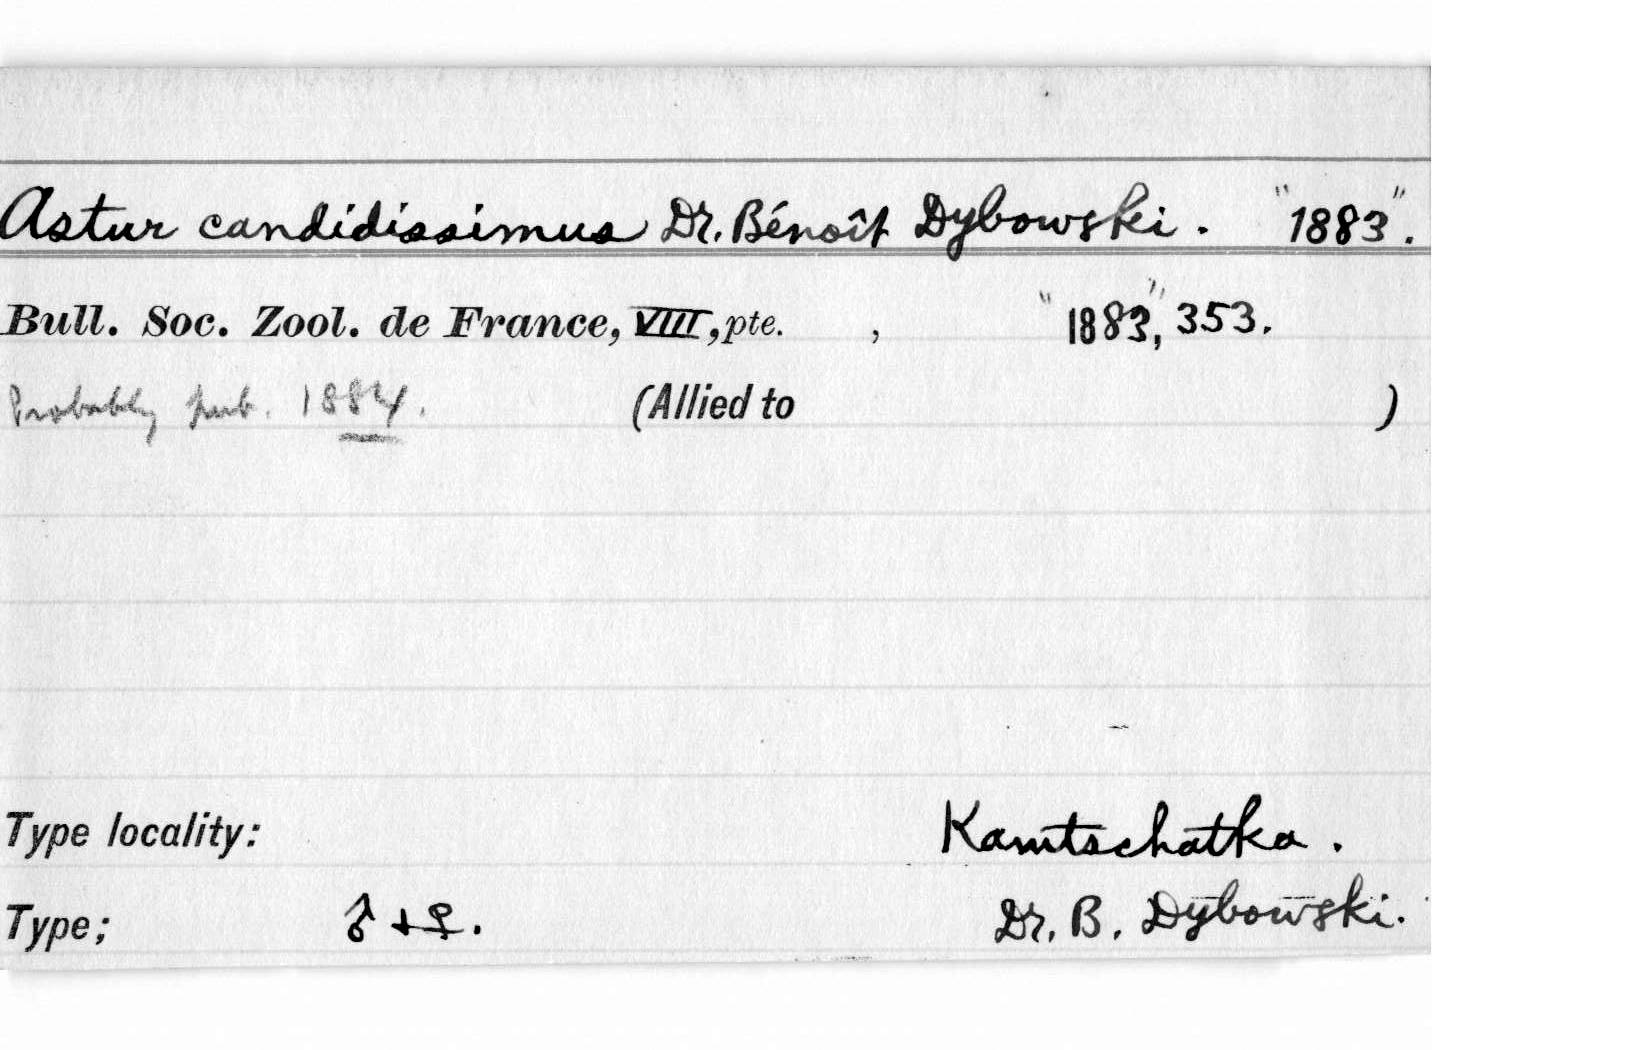 Astur candidissimus Dr. Bénoît Dybowski. "1883".
Bull. Soc. Zool. de France, VIII, pte. , "1883", 353.
Probably pub. 1884. (Allied to )
Type locality: Kamtschatka.
Type; ♂ + ♀. Dr. B. Dybowski.